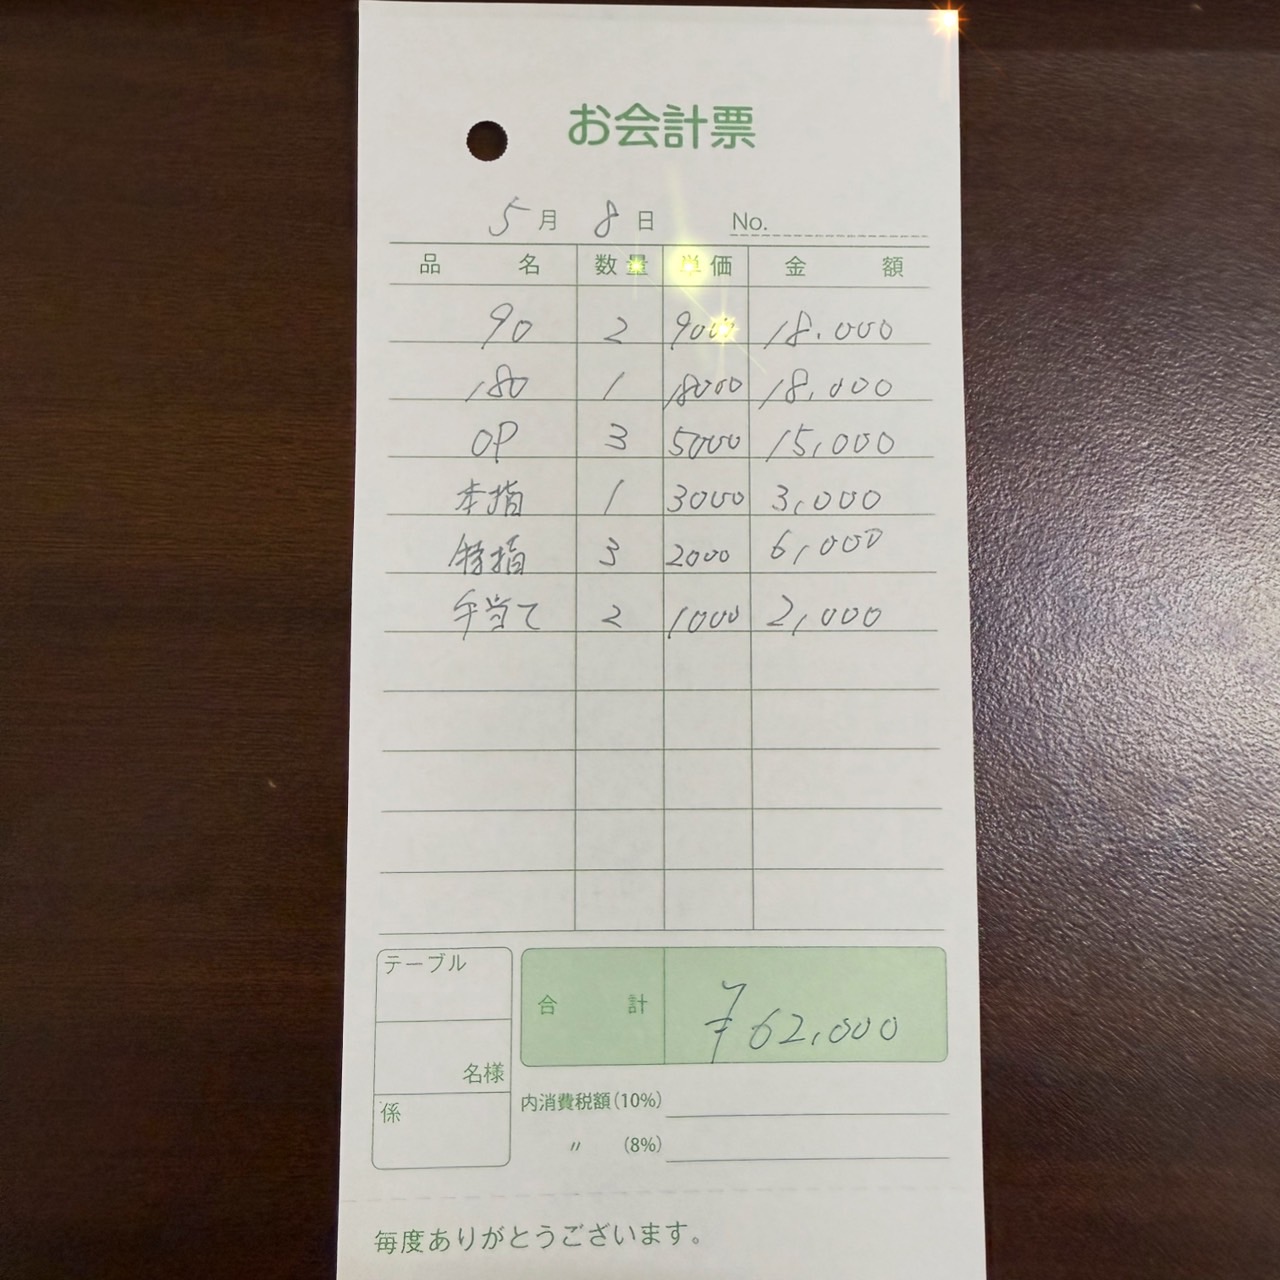 お会計票
5月 8日 No.
品名 数量 単価 金額
90 2 9000 18.000
180 1 18000 18,000
OP 3 5000 15,000
本指 1 3000 3,000
特指 3 2000 6,000
手当て 2 1000 2,000
テーブル
合計 ¥62,000
名様
係
内消費税額(10%)
〃 (8%)
毎度ありがとうございます。